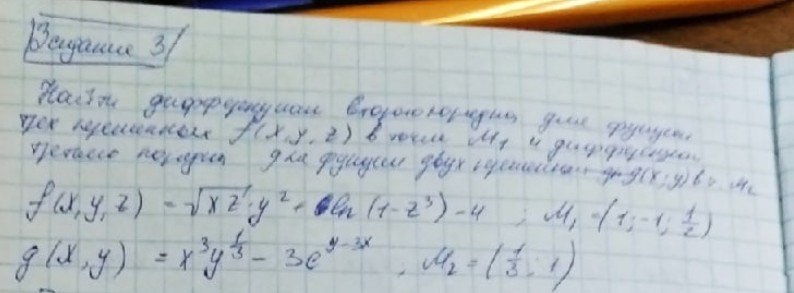 Задание 3
Найти дифференциал второго порядка для функции
трёх переменных f(x, y, z) в точке M₁ и дифференциал
третьего порядка для функции двух переменных g(x; y) в т. M₂
f(x, y, z) = √xz · y² + ln (1 - z³) - 4 ; M₁ = (1; -1; 1/2)
g(x, y) = x³y^(1/3) - 3e^(y-3x) ; M₂ = (1/3; 1)